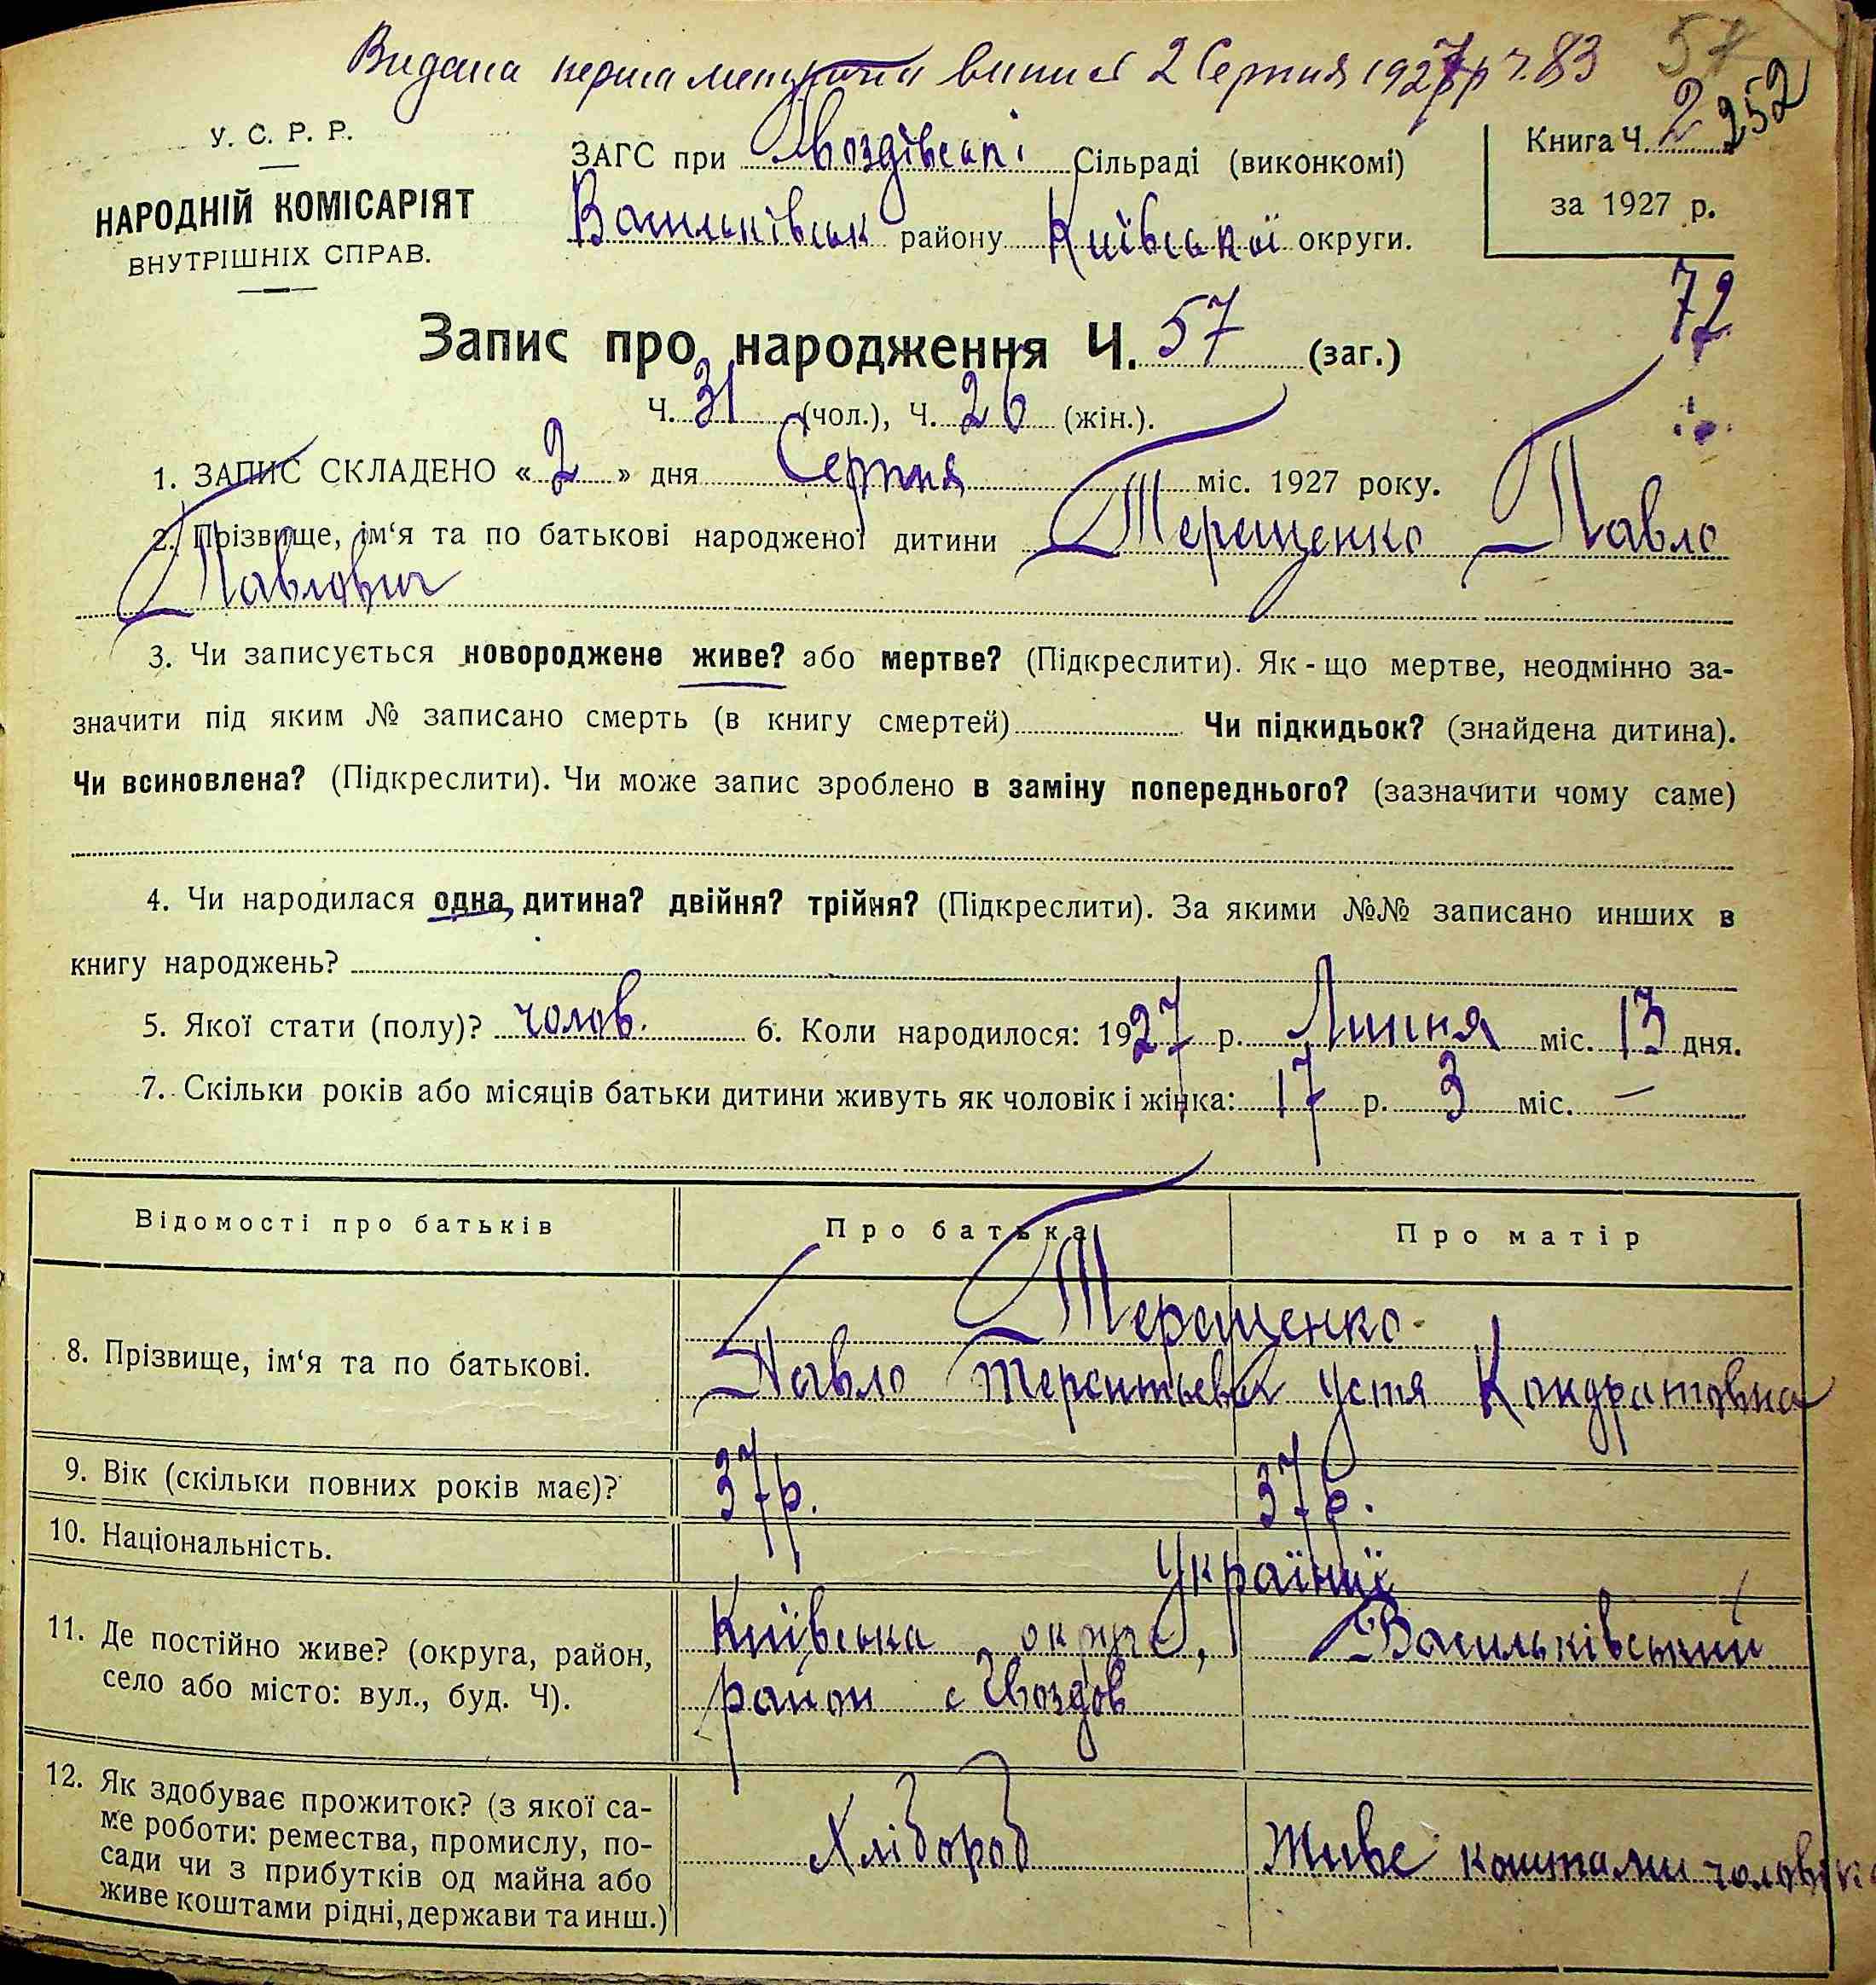 Видана перша метрична випис 2 Серпня 1927 р ч. 83
57
252
У. С. Р. Р.
НАРОДНІЙ КОМІСАРІЯТ
ВНУТРІШНІХ СПРАВ.
ЗАГС при Гвоздівські Сільраді (виконкомі)
Васильківськ району Київської округи.
Книга Ч. 2
за 1927 р.
72
Запис про народження Ч. 57 (заг.)
Ч. 31 (чол.), Ч. 26 (жін.).
1. ЗАПИС СКЛАДЕНО « 2 » дня Серпня міс. 1927 року.
2. Прізвище, ім‘я та по батькові народженої дитини Терещенко Павло
Павлович
3. Чи записується новороджене живе? або мертве? (Підкреслити). Як-що мертве, неодмінно за-
значити під яким № записано смерть (в книгу смертей) Чи підкидьок? (знайдена дитина).
Чи всиновлена? (Підкреслити). Чи може запис зроблено в заміну попереднього? (зазначити чому саме)
4. Чи народилася одна дитина? двійня? трійня? (Підкреслити). За якими №№ записано инших в
книгу народжень?
5. Якої стати (полу)? чолов. 6. Коли народилося: 1927 р. Липня міс. 13 дня.
7. Скільки років або місяців батьки дитини живуть як чоловік і жінка: 17 р. 3 міс. —
Відомості про батьків Про батька Про матір
Терещенко
8. Прізвище, ім‘я та по батькові. Павло Терентьевич Устя Кондратовна
9. Вік (скільки повних років має)? 37 р. 37 р.
10. Національність. Українці
11. Де постійно живе? (округа, район, Київська округа, Васильківський
село або місто: вул., буд. Ч). район с Гвоздов
12. Як здобуває прожиток? (з якої са-
ме роботи: ремества, промислу, по-
сади чи з прибутків од майна або Хлібороб Живе коштами чоловіка
живе коштами рідні, держави та инш.)